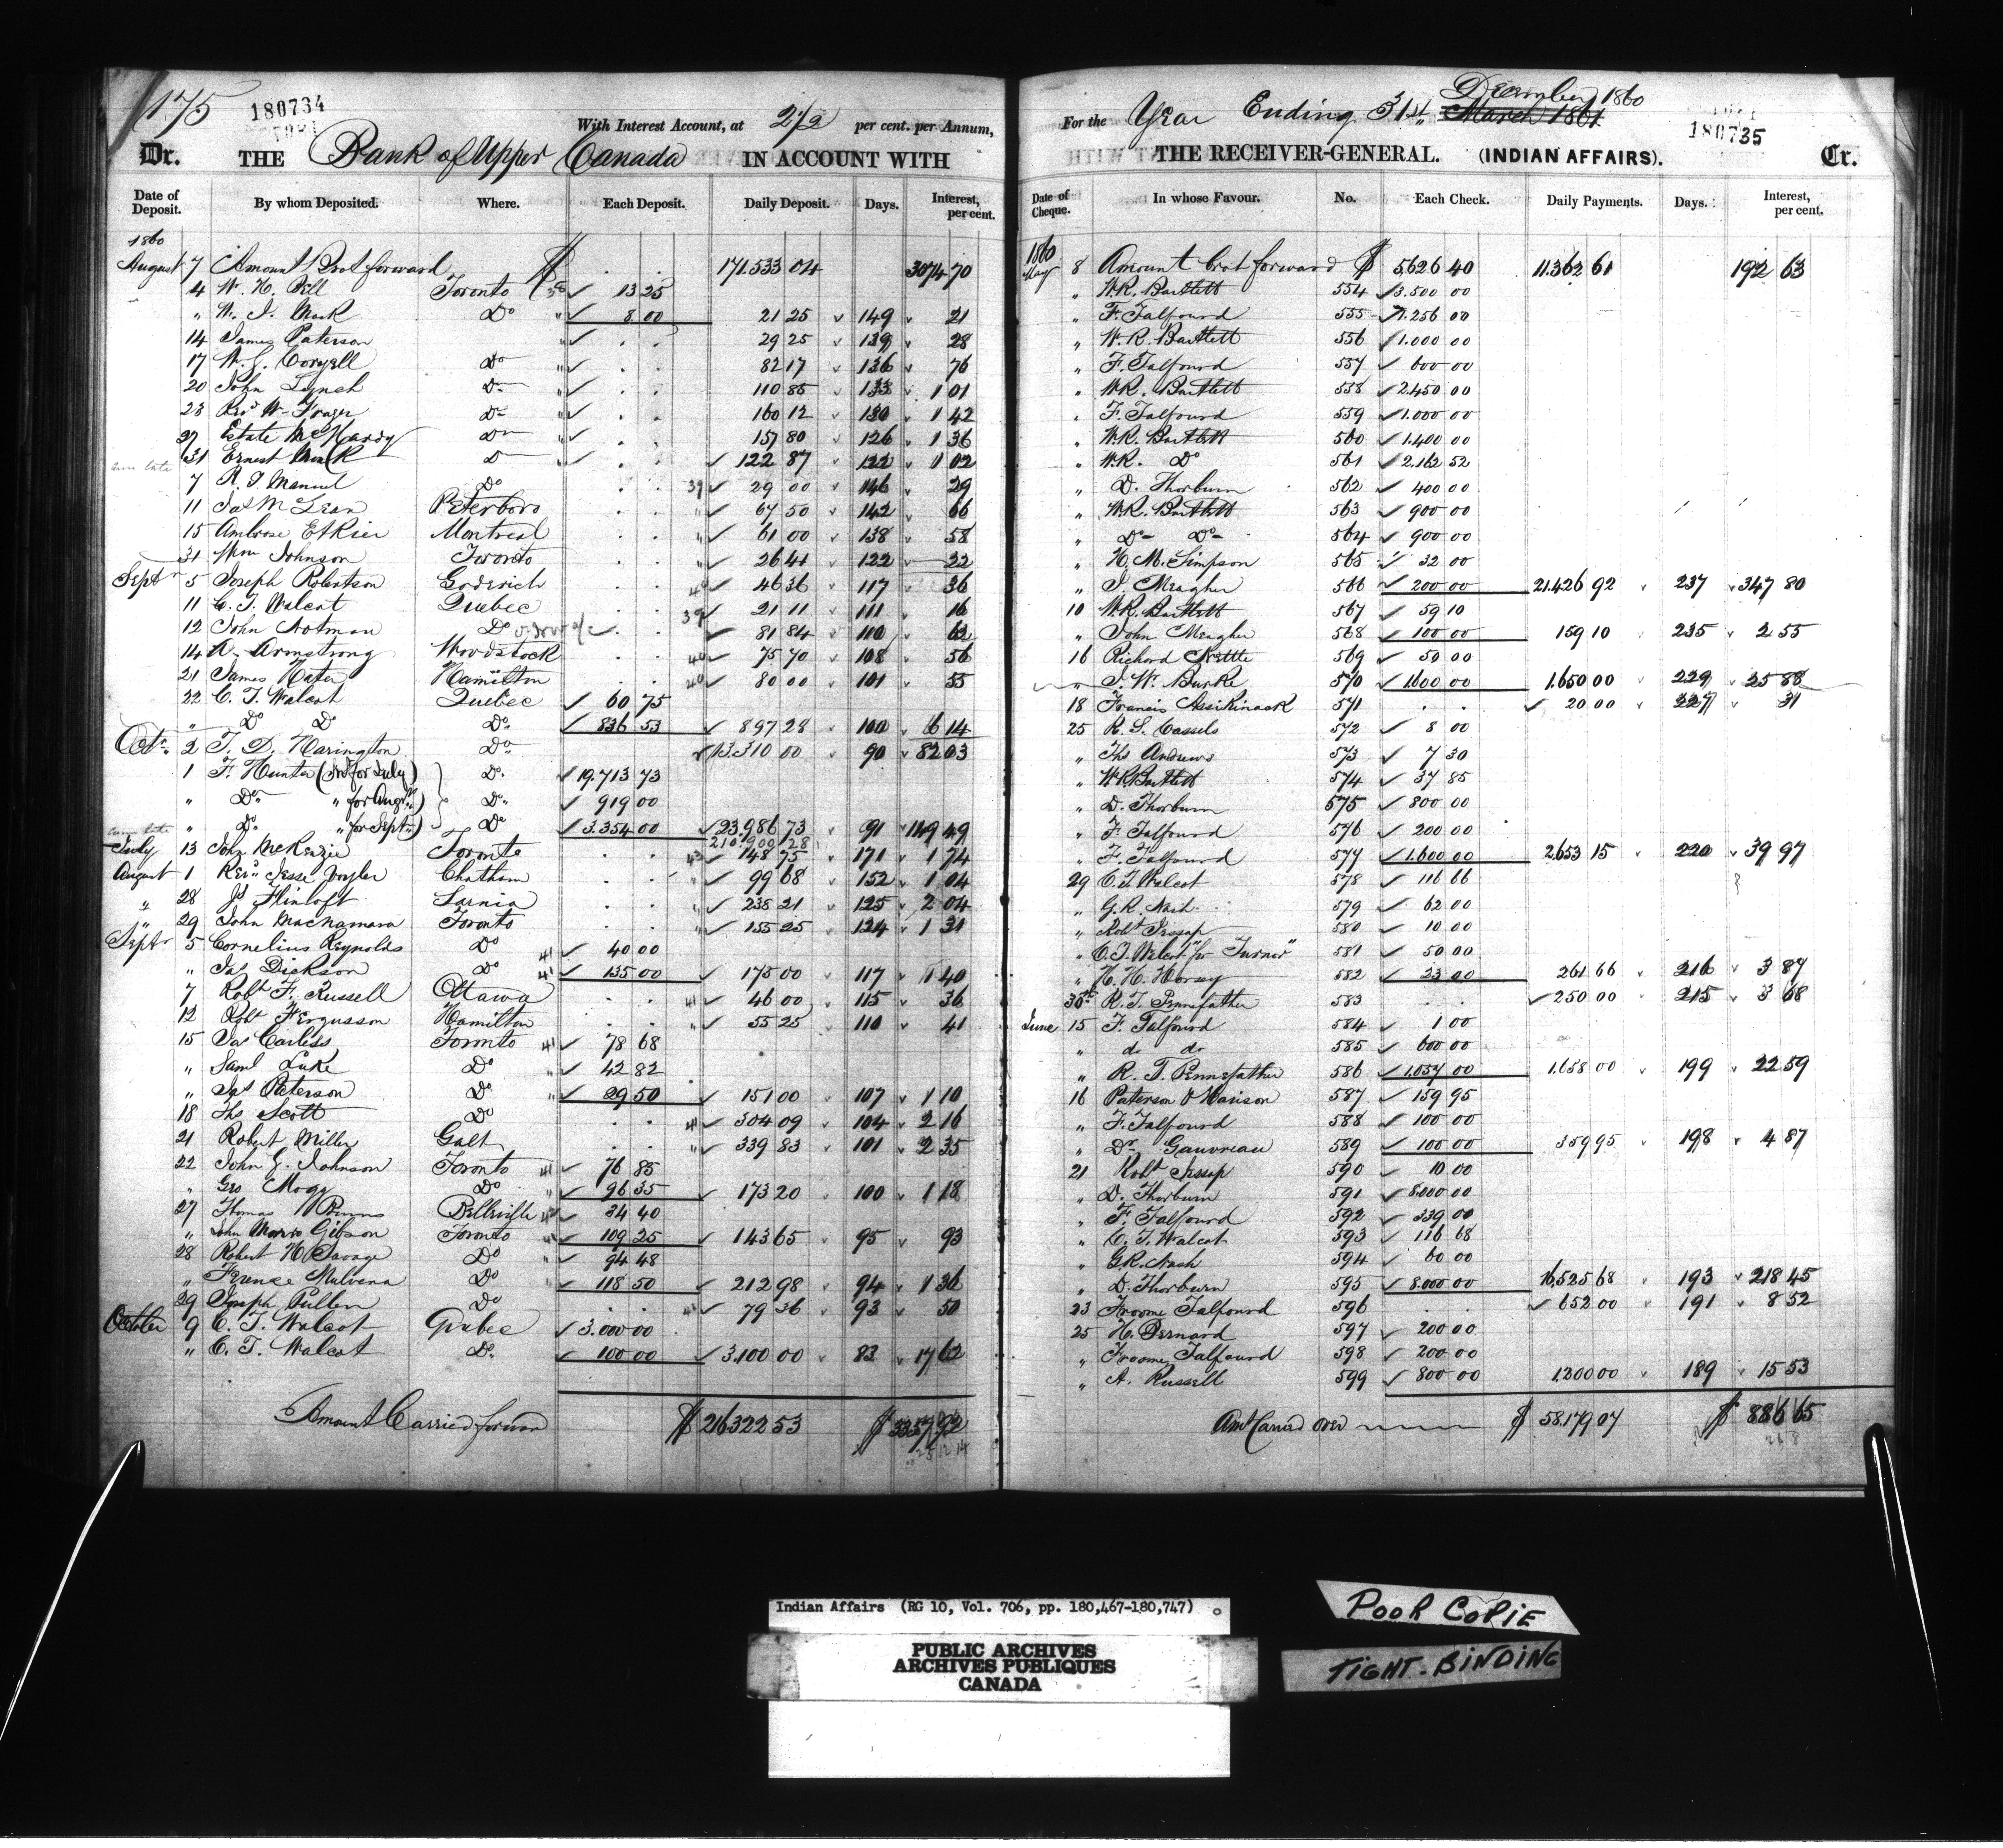 175
180734
With Interest Account, at 2½ per cent. per Annum,
Dr. THE Bank of Upper Canada IN ACCOUNT WITH
Date of Deposit. By whom Deposited. Where. Each Deposit. Daily Deposit. Days. Interest, per cent.
1860
August 7 Amount Brot forward $ 171.533 04 3074 70
4 W. H. Bell Toronto 38 13 25
" W. J. Mack Do " 8 00 21 25 149 21
14 James Paterson " 29 25 139 28
17 W. G. Coryell Do " 82 17 136 76
20 John Lynch Do " 110 85 133 1 01
23 Revd W. Frazer Do " 160 12 130 1 42
27 Estate McHardy Do " 157 80 126 1 36
31 Ernest Do 122 87 122 1 02
7 R. J. Manuel Do 39 29 00 146 29
11 Jas McLean Peterboro " 67 50 142 66
15 Ambrose Montreal " 61 00 138 58
31 Wm Johnson Toronto " 26 41 122 22
Septr 5 Joseph Robertson Goderich 46 36 117 36
11 C. T. Walcot Quebec 39 21 11 111 16
12 John Notman Do 81 84 110 62
14 A. Armstrong Woodstock 75 70 108 56
21 James Hamilton 40 80 00 101 55
22 C. T. Walcot Quebec 60 75
" Do Do Do 836 53 897 28 100 6 14
Octr 2 T. D. Harington Do 13.310 00 90 82 03
1 F. Hunter (Int for July) Do 19.713 73
" Do " for Augt) Do 919 00
" Do " for Septr) Do 3.354 00 23.986 73 91 149 49
210.900 28
July 13 John McKenzie Toronto 43 148 75 171 1 74
August 1 Revd Jesse Chatham " 99 68 152 1 04
" 28 Js Flintoft Sarnia " 238 21 125 2 04
" 29 John MacNamara Toronto " 155 25 124 1 31
Septr 5 Cornelius Reynolds Do 41 40 00
" Jas Dickson Do 41 135 00 175 00 117 1 40
7 Robt F. Russell Ottawa 41 46 00 115 36
12 Robt Fergusson Hamilton " 55 25 110 41
15 Jas Carliss Toronto 41 78 68
" Saml Luke Do " 42 82
" Jas Paterson Do " 29 50 151 00 107 1 10
18 Ths Scott Do 41 304 09 104 2 16
21 Robert Miller Galt " 339 83 101 2 35
22 John G. Johnson Toronto 41 76 85
" Geo Mogg Do " 96 35 173 20 100 1 18
27 Thomas Belleville 34 40
" John Morro Gibson Toronto 109 25 143 65 95 93
28 Robert H. Savage Do " 94 48
" Terence Mulvena Do " 118 50 212 98 94 1 36
29 Joseph Pullen Do 79 36 93 50
October 9 C. T. Walcot Quebec 3.000 00
" C. T. Walcot Do 100 00 3.100 00 83 17 62
Amount Carried forward $ 216322 53 $ 3357 92
180735
December 1860
For the Year Ending 31st March 1861
THE RECEIVER-GENERAL. (INDIAN AFFAIRS). Cr.
Date of Cheque. In whose Favour. No. Each Check. Daily Payments. Days. Interest, per cent.
1860
May 8 Amount brot forward $ 5626 40 11.362 61 192 63
" W.R. Bartlett 554 3.500 00
" F. Talfourd 555 1.256 00
" W.R. Bartlett 556 1.000 00
" F. Talfourd 557 600 00
" W.R. Bartlett 558 2.450 00
" F. Talfourd 559 1.000 00
" W.R. Bartlett 560 1.400 00
" W.R. Do 561 2.162 52
" D. Thorburn 562 400 00
" W.R. Bartlett 563 900 00
" Do Do 564 900 00
" H. M. Simpson 565 32 00
" J. Meagher 566 200 00 21.426 92 237 347 80
10 W.R. Bartlett 567 59 10
" John Meagher 568 100 00 159 10 235 2 55
16 Richard Kettle 569 50 00
" J. W. Burke 570 1.600 00 1.650 00 229 25 88
18 Francis Assikinack 571 20 00 227 31
25 R. S. Cassels 572 8 00
" Ths Andrews 573 7 30
" W.R. Bartlett 574 37 85
" D. Thorburn 575 800 00
" F. Talfourd 576 200 00
" F. Talfourd 577 1.600 00 2.653 15 220 39 97
29 C. T. Walcot 578 116 66
" G.R. Nash 579 62 00
" Robt Jessop 580 10 00
" C.T. Walcot "for Turner" 581 50 00
" H. H. Horsey 582 23 00 261 66 216 3 87
30th R. T. Pennefather 583 250 00 215 3 68
June 15 F. Talfourd 584 1 00
" do do 585 600 00
" R. T. Pennefather 586 1.057 00 1.658 00 199 22 59
16 Paterson & Harison 587 159 95
" F. Talfourd 588 100 00
" Dr Gauvreau 589 100 00 359 95 198 4 87
21 Robt Jessop 590 10 00
" D. Thorburn 591 8.000 00
" F. Talfourd 592 339 00
" C. T. Walcot 593 116 68
" G.R. Nash 594 60 00
" D. Thorburn 595 8.000 00 16.525 68 193 218 45
23 Froome Talfourd 596 652 00 191 8 52
25 H. Bernard 597 200 00
" Froome Talfourd 598 200 00
" A. Russell 599 800 00 1.200 00 189 15 53
Amt Carried over $ 58.179 07 $ 886 65
Indian Affairs (RG 10, Vol. 706, pp. 180,467-180,747)
PUBLIC ARCHIVES
ARCHIVES PUBLIQUES
CANADA
POOR COPIE
TIGHT-BINDING